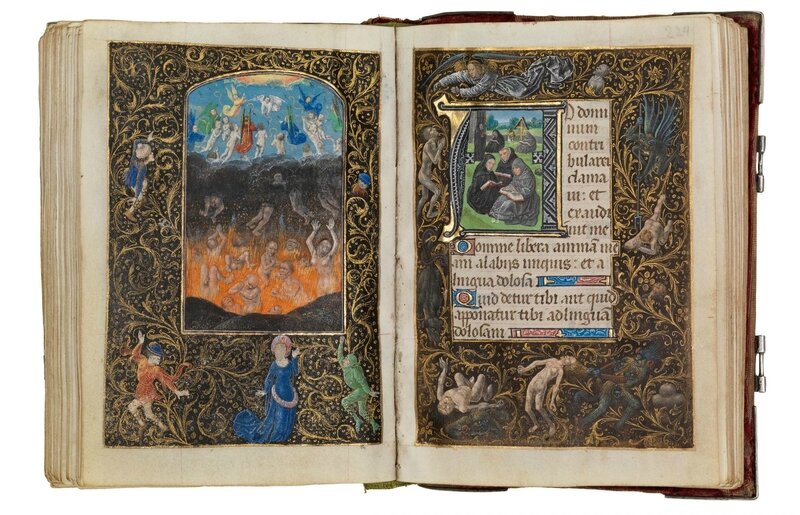 224
A D domi
num
contri
bularer
clama
ui: et
exaudi
uit me
Domine libera animā me
am a labijs iniquis: et a
lingua dolosa
Quid detur tibi aut quid
apponatur tibi ad linguā
dolosam